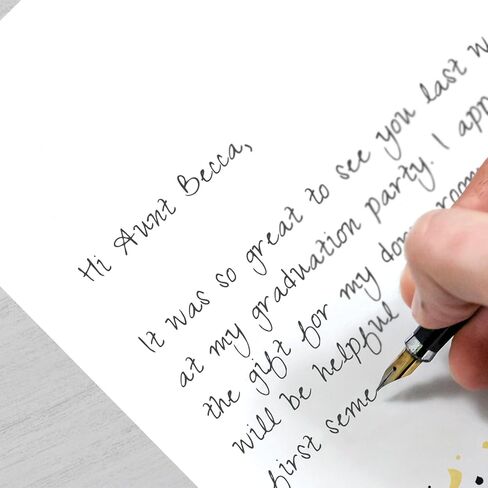 Hi Aunt Becca,
It was so great to see you last
at my graduation party. I
the gift for my dorm room
will be helpful
first seme